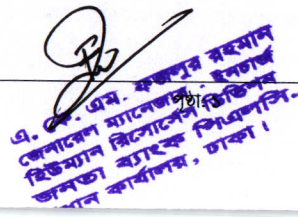 পৃষ্ঠা-১
এ. কে. এম. ফজলুর রহমান
জেনারেল ম্যানেজার - ইনচার্জ
হিউম্যান রিসোর্সেস ডিভিশন
জনতা ব্যাংক পিএলসি.
কার্যালয়, ঢাকা।